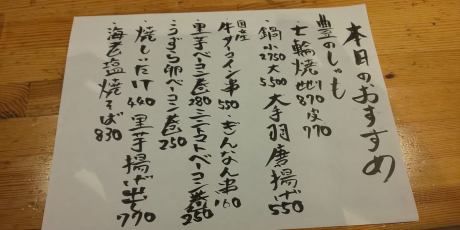 本日のおすすめ
豊のしゃも
・七輪焼 西り870 皮770
・鍋 小2750 大5500 大手羽唐揚げ550
・国産牛サーロイン串550 ・ぎんなん串160
・里芋ベーコン巻280 ミニトマトベーコン巻250
・うずら卵ベーコン巻250
・焼しいたけ440 里芋揚げ出し770
・海老塩焼そば830